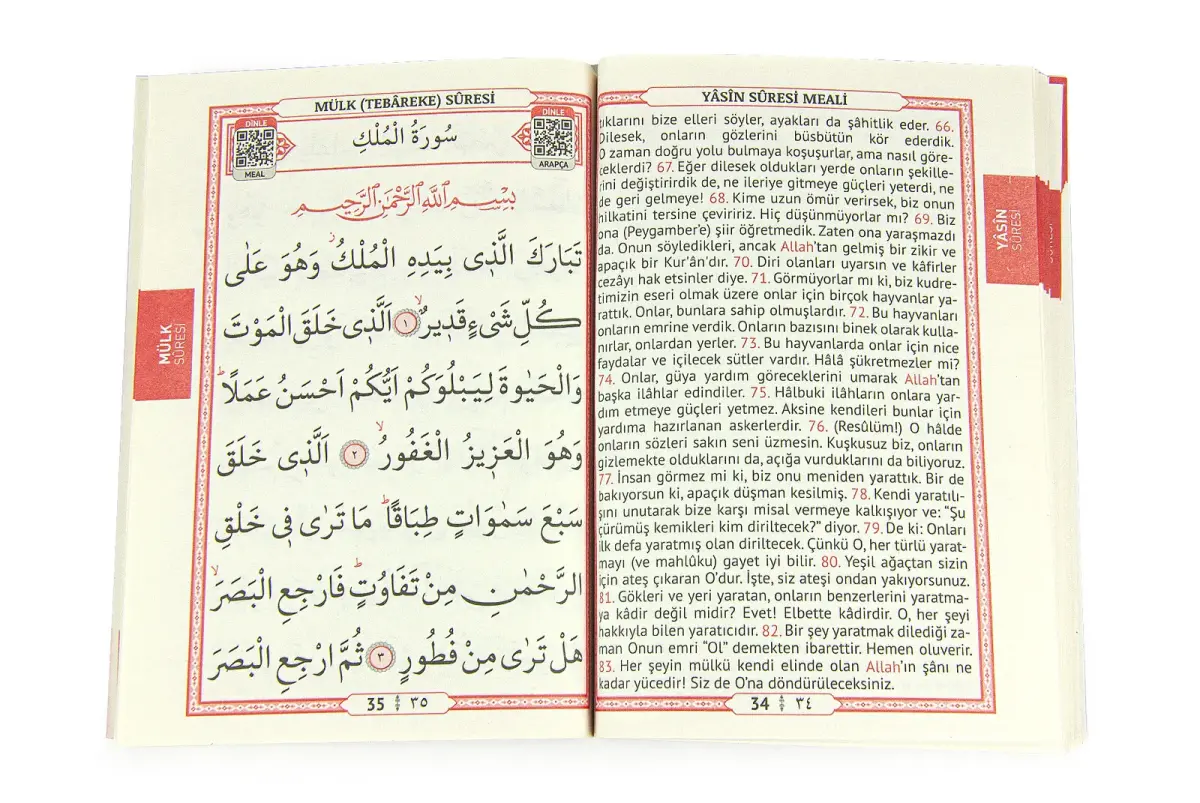 YÂSÎN SÛRESİ MEALİ
ıklarını bize elleri söyler, ayakları da şâhitlik eder. 66.
Dilesek, onların gözlerini büsbütün kör ederdik.
O zaman doğru yolu bulmaya koşuşurlar, ama nasıl göre-
ceklerdi? 67. Eğer dilesek oldukları yerde onların şekille-
rini değiştirirdik de, ne ileriye gitmeye güçleri yeterdi, ne
de geri gelmeye! 68. Kime uzun ömür verirsek, biz onun
hilkatini tersine çeviririz. Hiç düşünmüyorlar mı? 69. Biz
ona (Peygamber’e) şiir öğretmedik. Zaten ona yaraşmazdı
da. Onun söyledikleri, ancak Allah’tan gelmiş bir zikir ve
apaçık bir Kur’ân’dır. 70. Diri olanları uyarsın ve kâfirler
cezâyı hak etsinler diye. 71. Görmüyorlar mı ki, biz kudre-
timizin eseri olmak üzere onlar için birçok hayvanlar ya-
rattık. Onlar, bunlara sahip olmuşlardır. 72. Bu hayvanları
onların emrine verdik. Onların bazısını binek olarak kulla-
nırlar, onlardan yerler. 73. Bu hayvanlarda onlar için nice
faydalar ve içilecek sütler vardır. Hâlâ şükretmezler mi?
74. Onlar, güya yardım göreceklerini umarak Allah’tan
başka ilâhlar edindiler. 75. Hâlbuki ilâhların onlara yar-
dım etmeye güçleri yetmez. Aksine kendileri bunlar için
yardıma hazırlanan askerlerdir. 76. (Resûlüm!) O hâlde
onların sözleri sakın seni üzmesin. Kuşkusuz biz, onların
gizlemekte olduklarını da, açığa vurduklarını da biliyoruz.
77. İnsan görmez mi ki, biz onu meniden yarattık. Bir de
bakıyorsun ki, apaçık düşman kesilmiş. 78. Kendi yaratılı-
şını unutarak bize karşı misal vermeye kalkışıyor ve: “Şu
çürümüş kemikleri kim diriltecek?” diyor. 79. De ki: Onları
ilk defa yaratmış olan diriltecek. Çünkü O, her türlü yarat-
mayı (ve mahlûku) gayet iyi bilir. 80. Yeşil ağaçtan sizin
için ateş çıkaran O’dur. İşte, siz ateşi ondan yakıyorsunuz.
81. Gökleri ve yeri yaratan, onların benzerlerini yaratma-
ya kâdir değil midir? Evet! Elbette kâdirdir. O, her şeyi
hakkıyla bilen yaratıcıdır. 82. Bir şey yaratmak dilediği za-
man Onun emri “OL” demekten ibarettir. Hemen oluverir.
83. Her şeyin mülkü kendi elinde olan Allah’ın şânı ne
kadar yücedir! Siz de O’na döndürüleceksiniz.
34 ٣٤
YÂSÎN
SÛRESİ
MÜLK (TEBÂREKE) SÛRESİ
DİNLE
ARAPÇA
سُورَةُ الْمُلْكِ
DİNLE
MEAL
بِسْمِ اللّٰهِ الرَّحْمٰنِ الرَّحِيمِ
تَبَارَكَ الَّذ۪ي بِيَدِهِ الْمُلْكُۘ وَهُوَ عَلٰى
كُلِّ شَيْءٍ قَد۪يرٌۙ ١ اَلَّذ۪ي خَلَقَ الْمَوْتَ
وَالْحَيٰوةَ لِيَبْلُوَكُمْ اَيُّكُمْ اَحْسَنُ عَمَلًاۜ
وَهُوَ الْعَز۪يزُ الْغَفُورُۙ ٢ اَلَّذ۪ي خَلَقَ
سَبْعَ سَمٰوَاتٍ طِبَاقًاۜ مَا تَرٰى ف۪ي خَلْقِ
الرَّحْمٰنِ مِنْ تَفَاوُتٍۜ فَارْجِعِ الْبَصَرَۙ
هَلْ تَرٰى مِنْ فُطُورٍ ٣ ثُمَّ ارْجِعِ الْبَصَرَ
35 ٣٥
MÜLK
SÛRESİ